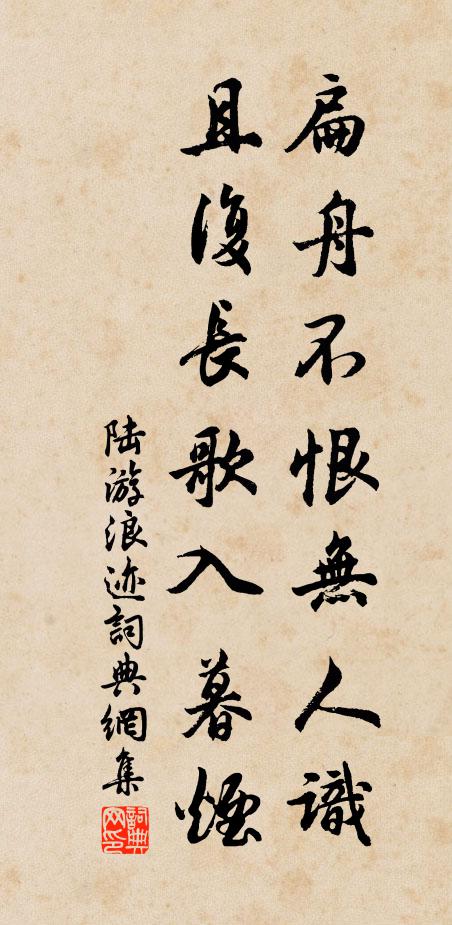 扁舟不恨無人識
且復長歌入暮煙
陆游浪迹詞典網集
詞典網印